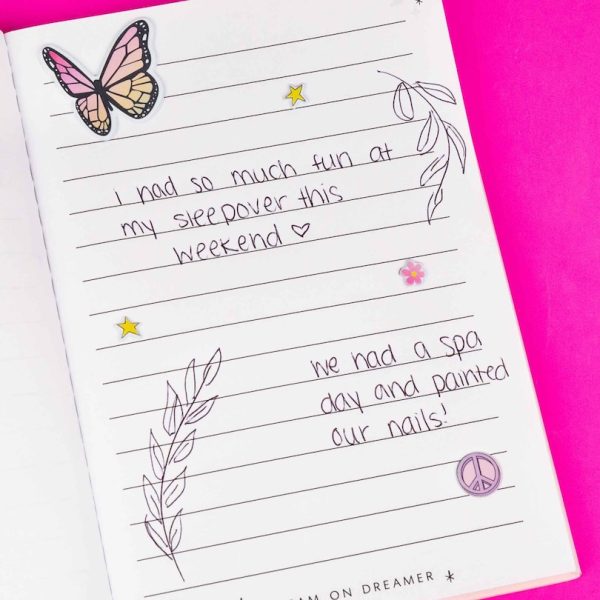 i had so much fun at
my sleepover this
weekend ♡
we had a spa
day and painted
our nails!
ON DREAMER *